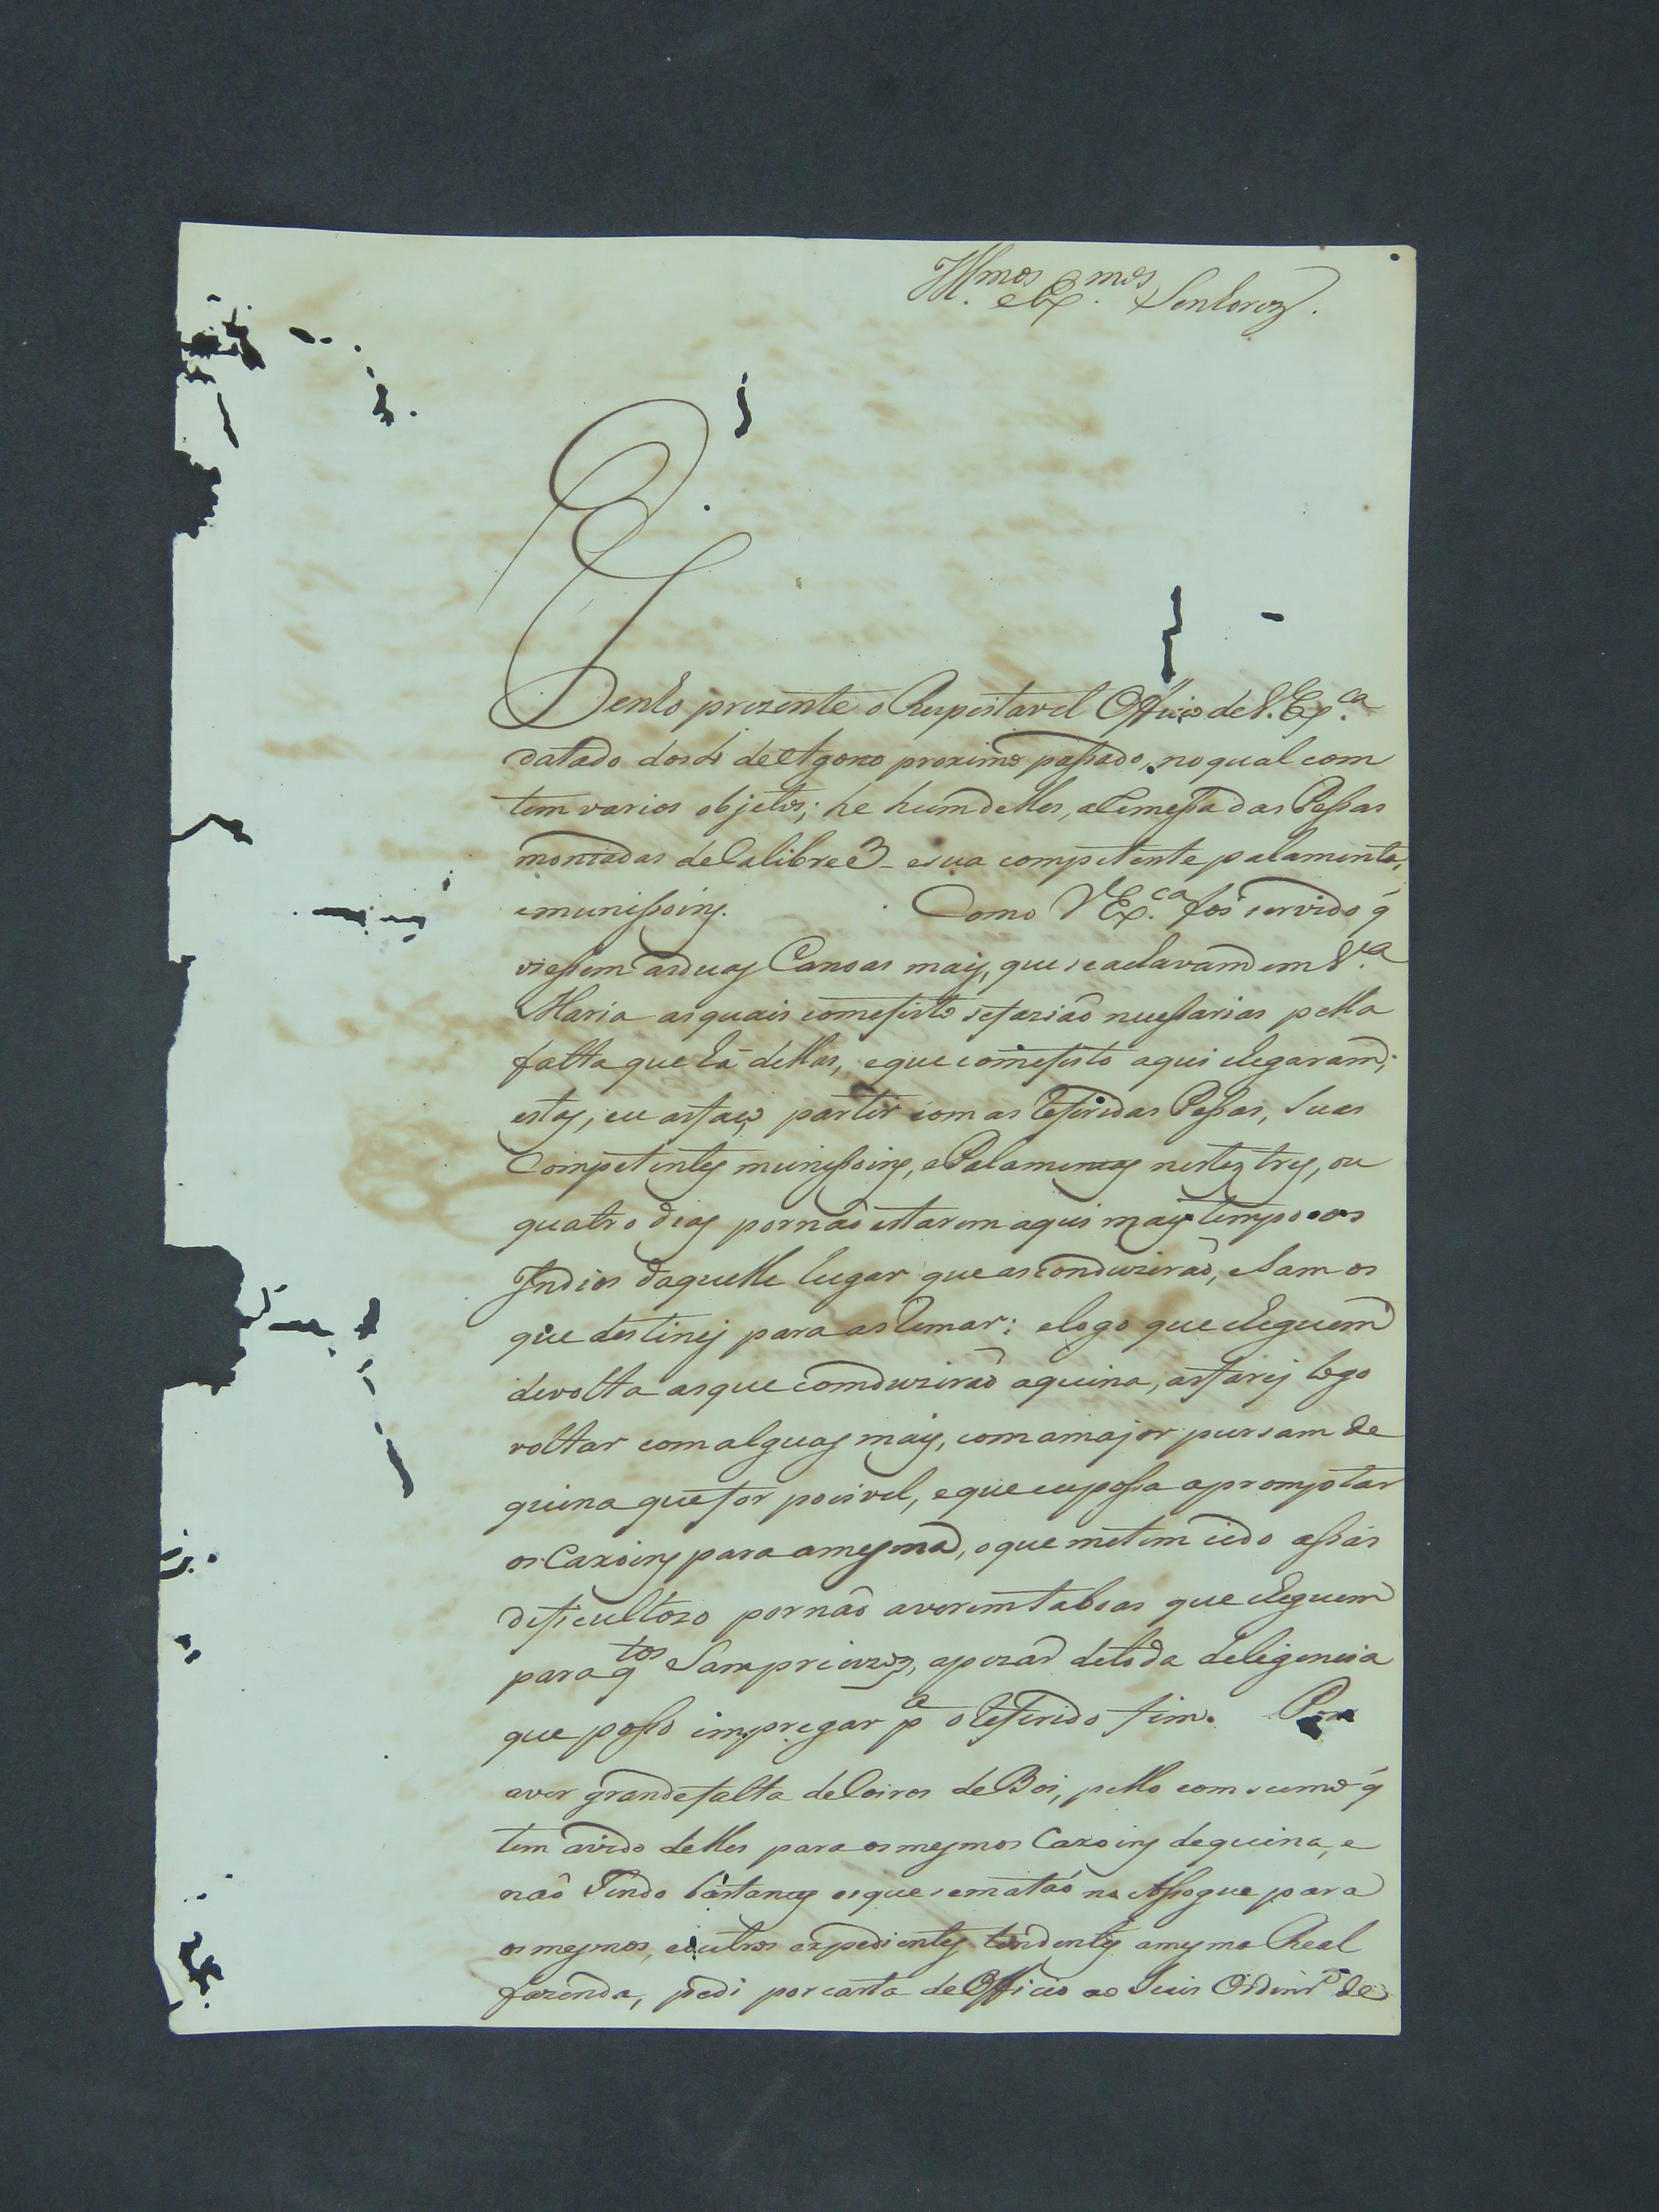 Illmos. e Exmos. Senhorez.
Tenho prezente o Respeitavel Officio de V. Exca.
datado dos de Agosto proximo passado, no qual com
tem varios objetos; he hum delles, a Remessa das Pessas
montadas de Calibre 3 e sua competente palamenta,
e munissoins. Como V Exca. foi servido q
viessem as duas Canoas mais, que se achavam em Va.
Maria as quais com efeito se fazião nessarias pella
falta que há dellas, e que com efeito aqui chegaram;
estas, eu as faço partir com as Referidas Pessas, Suas
Competentes munissoins, e Palamentas nestez tres, ou
quatro dias por não estarem aqui mais tempo os
Indios daquelle lugar que as conduzirão, e sam os
que destinej para as Remar: e logo que cheguem
de volta as que comduzirão a quina, as farej logo
voltar com alguas mais, com a major pursam de
quina que for pocivel, e que eu possa apromptar
os Caxoins para a mesma, o que me tem cido assás
dificultozo por não averem taboas que cheguem
para qtos Sam precizoz, apezar de toda deligencia
que posso impregar pa. o Referido fim. Por
aver grande falta de Coiros de Boi, pello comsumo q
tem avido delles para os mesmos Caxoins de quina, e
não Sendo bastantes os que se matão no Assogue para
os mesmos, e outros expedientes tendentes a mesma Real
fazenda, pedi por carta de Officio ao Juis Ordinro. de